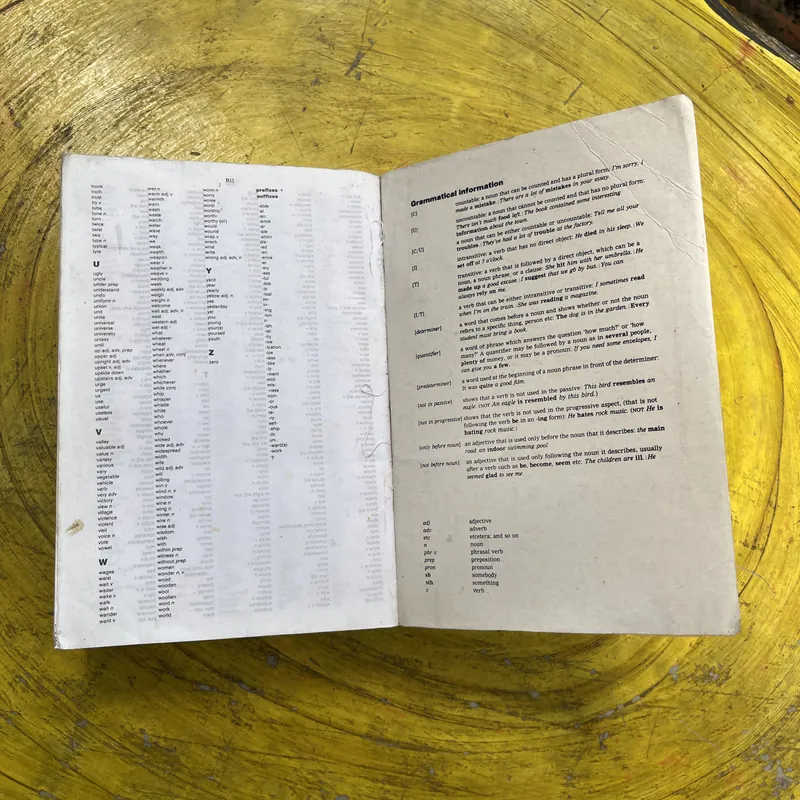 B13
trunk
truth
trust
try v
tube
tune n
turn
twice
twist
two
type n
typical
tyre
U
ugly
uncle
under prep
understand
undo
uniform n
union
unit
unite
universal
universe
university
unless
until
up adj, prep
upper adj
upright adj, adv
upset v, adj
upside down
upstairs adj, adv
urge
urgent
us
use
useful
useless
usual
V
valley
valuable adj
value n
variety
various
vary
vegetable
vehicle
verb
very adv
victory
view n
village
violence
violent
visit
voice n
vote
vowel
W
wages
waist
wait v
waiter
wake v
walk
wall n
wander
want v
war n
warm adj, v
warmth
warn
wash
waste
watch
water
wave
way
we
weak
wealth
weapon
wear v
weather n
weave v
wedding
week
weekly adj, adv
weigh
weight n
welcome
well adj, adv, n
west
western adj
wet adj
what
whatever
wheat
wheel n
when adv, conj
whenever
where
whether
which
whichever
while conj
whip
whisper
whistle
white
who
whoever
whole
why
wicked
wide adj, adv
widespread
width
wife
wild adj, adv
will
willing
win v
wind n, v
window
wine n
wing n
winter n
wire n
wise adj
wisdom
wish
with
within prep
witness n
without prep
woman
wonder n, v
wood
wooden
wool
woollen
word n
work
world
worm n
worry
worse
worst
worship
worth
worthy
would
wound
wrap v
wreck
wrist
write
wrong adj, adv, n
Y
yard
year
yearly
yellow adj, n
yes
yesterday
yet
you
young
your(s)
yourself
youth
Z
zero
prefixes +
suffixes
-ful
-ish
-ity
-ive
-ization
-ize
-less
-like
-ly
-ment
mid-
mis-
-ness
non-
-or
-ous
re-
-ry
self-
-ship
-th
un-
-ward(s)
-work
-y
Grammatical information
[C] countable: a noun that can be counted and has a plural form: I'm sorry, I
made a mistake. | There are a lot of mistakes in your essay.
[U] uncountable: a noun that cannot be counted and that has no plural form:
There isn't much food left. | The book contained some interesting
information about the town.
[C/U] a noun that can be either countable or uncountable: Tell me all your
troubles. | They've had a lot of trouble at the factory.
[I] intransitive: a verb that has no direct object: He died in his sleep. | We
set off at 7 o'clock.
[T] transitive: a verb that is followed by a direct object, which can be a
noun, a noun phrase, or a clause: She hit him with her umbrella. | He
made up a good excuse. | I suggest that we go by bus. | You can
always rely on me.
[I/T] a verb that can be either intransitive or transitive: I sometimes read
when I'm on the train. | She was reading a magazine.
[determiner] a word that comes before a noun and shows whether or not the noun
refers to a specific thing, person etc: The dog is in the garden. | Every
student must bring a book.
[quantifier] a word or phrase which answers the question "how much?" or 'how
many?' A quantifier may be followed by a noun as in several people,
plenty of money, or it may be a pronoun: If you need some envelopes, I
can give you a few.
[predeterminer] a word used at the beginning of a noun phrase in front of the determiner:
It was quite a good film.
[not in passive] shows that a verb is not used in the passive: This bird resembles an
eagle. (NOT An eagle is resembled by this bird.)
[not in progressive] shows that the verb is not used in the progressive aspect, (that is not
following the verb be in an -ing form): He hates rock music. (NOT He is
hating rock music.)
[only before noun] an adjective that is used only before the noun that it describes: the main
road. an indoor swimming pool.
[not before noun] an adjective that is used only following the noun it describes, usually
after a verb such as be, become, seem etc: The children are ill. | He
seemed glad to see me.
adj adjective
adv adverb
etc etcetera; and so on
n noun
phr v phrasal verb
prep preposition
pron pronoun
sb somebody
sth something
v verb